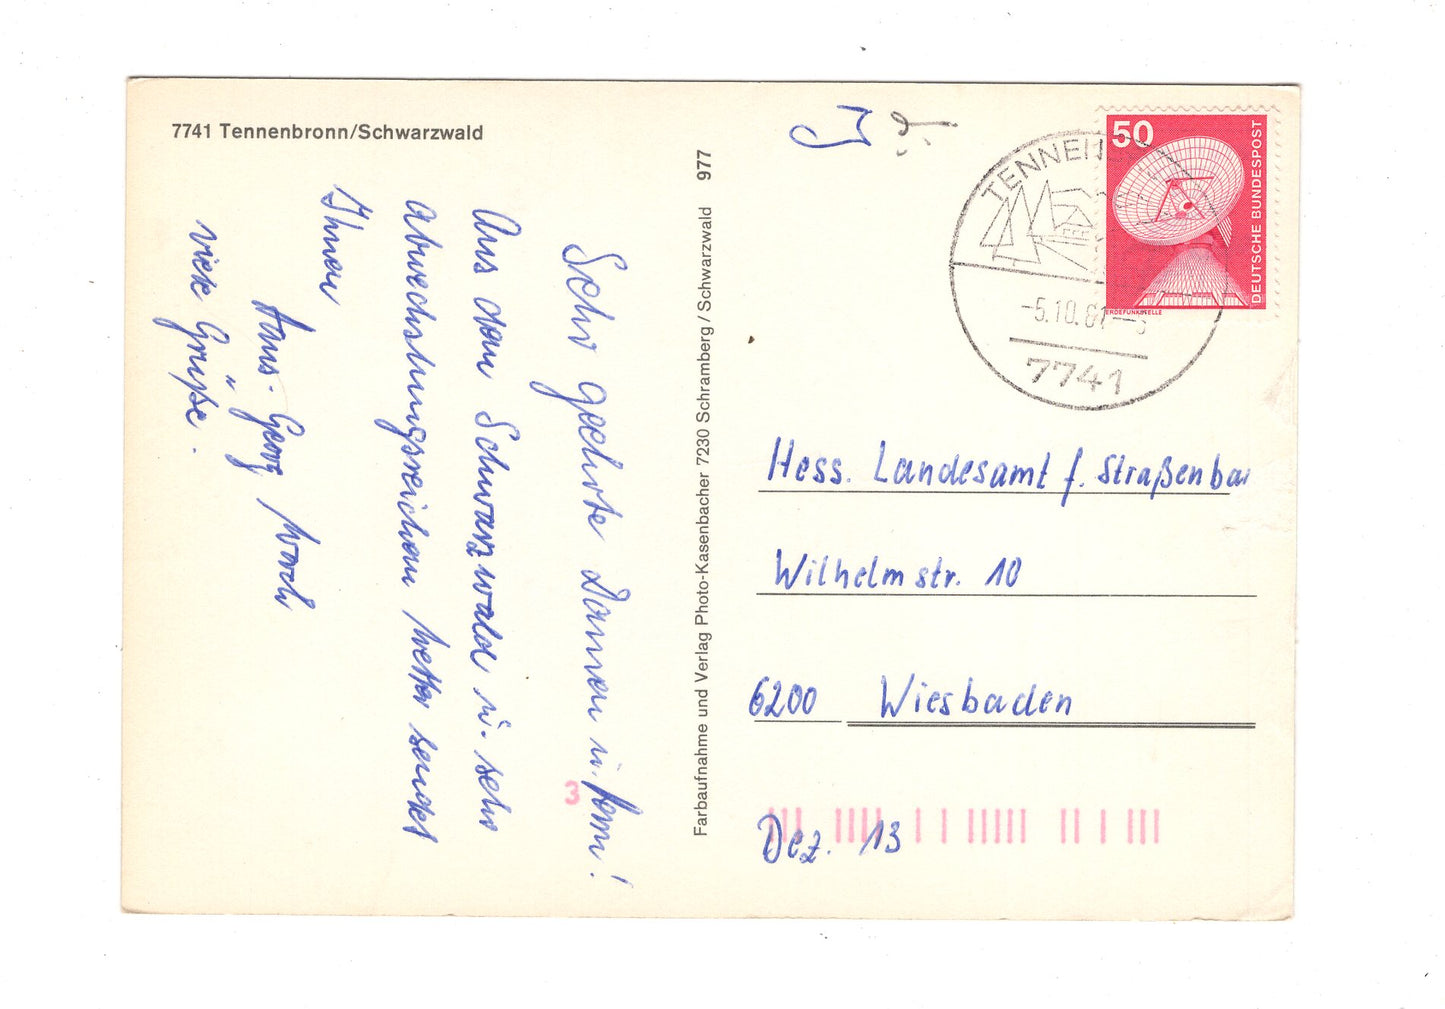 7741 Tennenbronn/Schwarzwald
Sehr geehrte Damen u. Herrn!
Aus dem Schwarzwald u. sehr
abwechslungsreichem Wetter sendet
Ihnen
Hans-Georg
viele Grüße.
Farbaufnahme und Verlag Photo-Kasenbacher 7230 Schramberg / Schwarzwald 977
50
DEUTSCHE BUNDESPOST
ERDEFUNKSTELLE
-5.10.81
7741
Hess. Landesamt f. Straßenbau
Wilhelmstr. 10
6200 Wiesbaden
Dez. 13
3